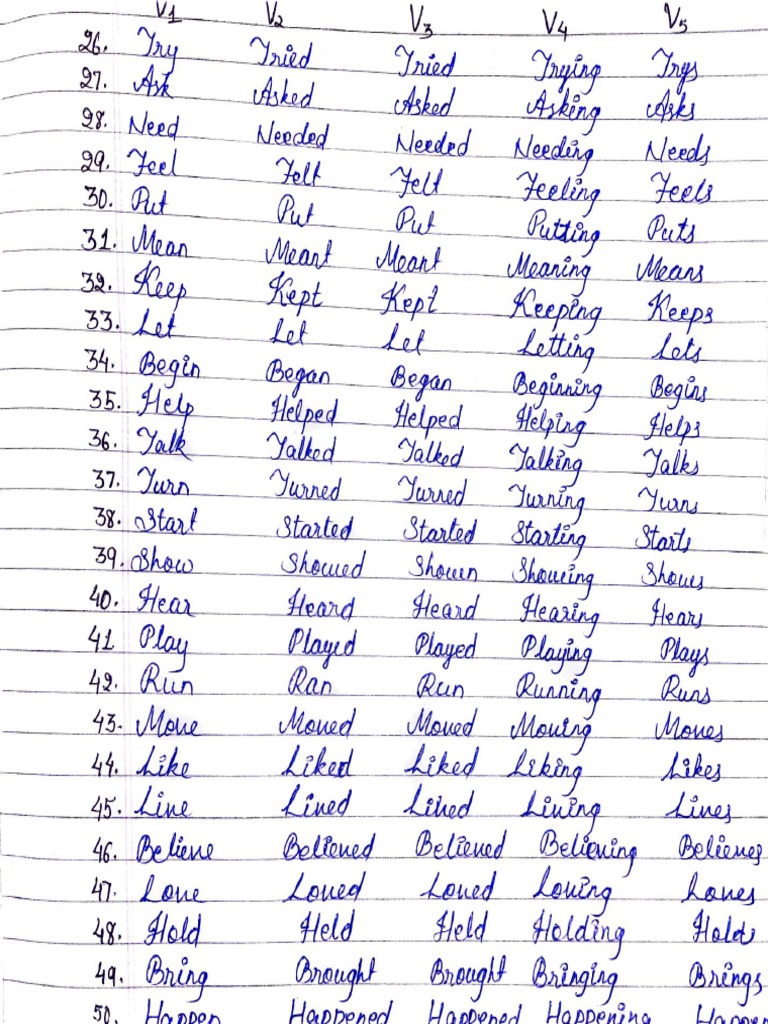 V1 V2 V3 V4 V5
26. Try Tried Tried Trying Trys
27. Ask Asked Asked Asking Asks
28. Need Needed Needed Needing Needs
29. Feel Felt Felt Feeling Feels
30. Put Put Put Putting Puts
31. Mean Meant Meant Meaning Means
32. Keep Kept Kept Keeping Keeps
33. Let Let Let Letting Lets
34. Begin Began Began Beginning Begins
35. Help Helped Helped Helping Helps
36. Talk Talked Talked Talking Talks
37. Turn Turned Turned Turning Turns
38. Start Started Started Starting Starts
39. Show Showed Shown Showing Shows
40. Hear Heard Heard Hearing Hears
41 Play Played Played Playing Plays
42. Run Ran Run Running Runs
43. Move Moved Moved Moving Moves
44. Like Liked Liked Liking Likes
45. Live Lived Lived Living Lives
46. Believe Believed Believed Believing Believes
47. Love Loved Loved Loving Loves
48. Hold Held Held Holding Holds
49. Bring Brought Brought Bringing Brings
50. Happen Happened Happened Happening Happen